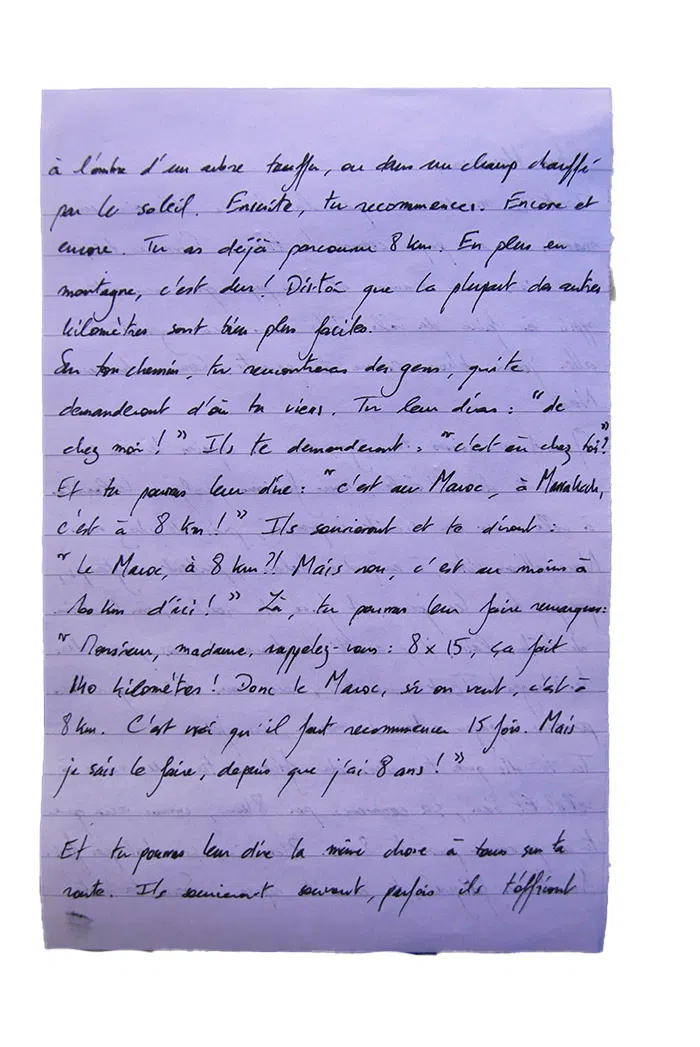 à l'ombre d'un arbre touffu, ou dans un champ chauffé
par le soleil. Ensuite, tu recommences. Encore et
encore. Tu as déjà parcouru 8 km. En plus en
montagne, c'est dur! Dis-toi que la plupart des autres
kilomètres sont bien plus faciles.
Sur ton chemin, tu rencontreras des gens, qui te
demanderont d'où tu viens. Tu leur diras : "de
chez moi ! " Ils te demanderont : "c'est où chez toi?"
Et tu pourras leur dire : "c'est au Maroc, à Marrakech,
c'est à 8 km ! " Ils souriront et te diront :
" Le Maroc, à 8 km ?! Mais non, c'est au moins à
100 km d'ici ! " Là, tu pourras leur faire remarquer:
" Monsieur, madame, rappelez-vous : 8 x 15, ça fait
140 kilomètres ! Donc le Maroc, si on veut, c'est à
8 km. C'est vrai qu'il faut recommencer 15 fois. Mais
je sais le faire, depuis que j'ai 8 ans ! "
Et tu pourras leur dire la même chose à tous sur ta
route. Ils souriront souvent, parfois ils t'offriront